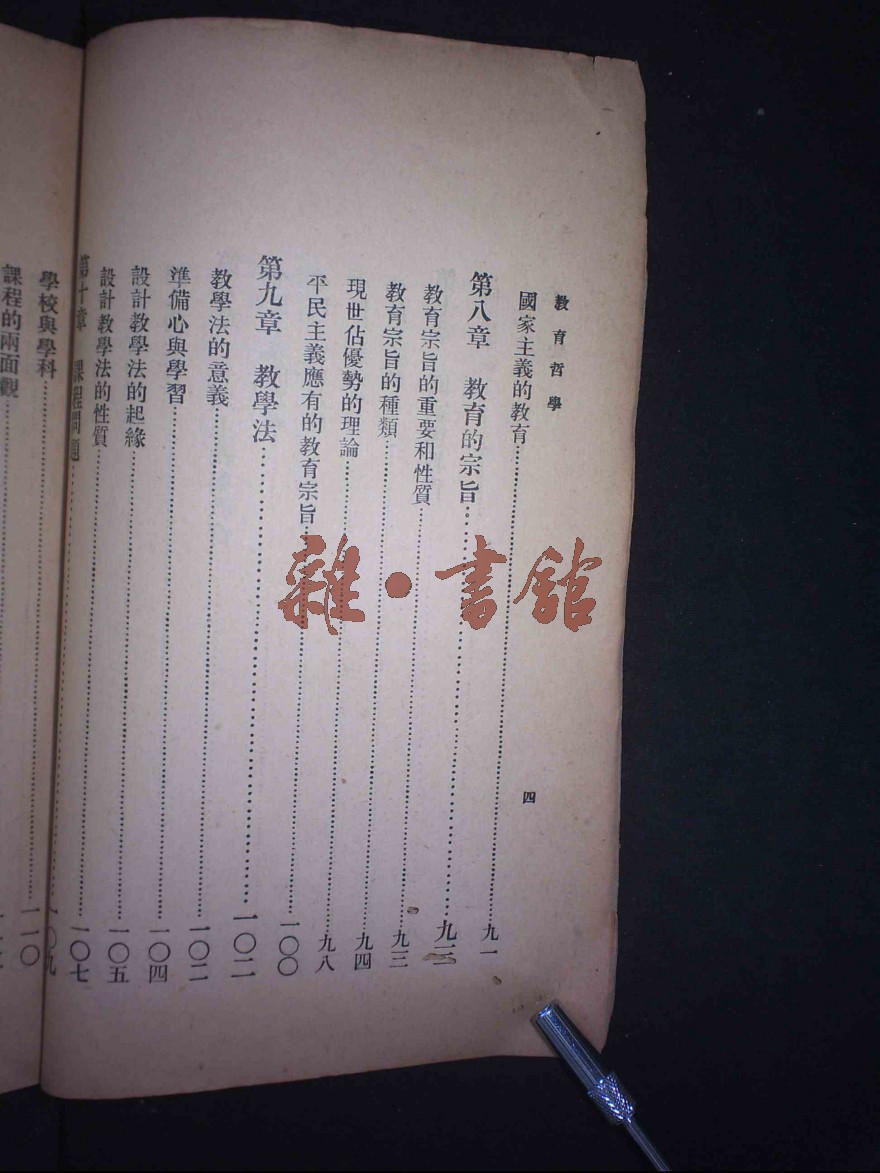 教育哲學 四
國家主義的教育……九一
第八章 教育的宗旨……九三
教育宗旨的重要和性質……九三
教育宗旨的種類……九四
現世佔優勢的理論……九八
平民主義應有的教育宗旨……一〇〇
第九章 教學法……一〇二
教學法的意義……一〇二
準備心與學習……一〇四
設計教學法的起緣……一〇五
設計教學法的性質……一〇七
第十章 課程問題……一〇九
學校與學科……一一〇
課程的兩面觀……
雜•書館